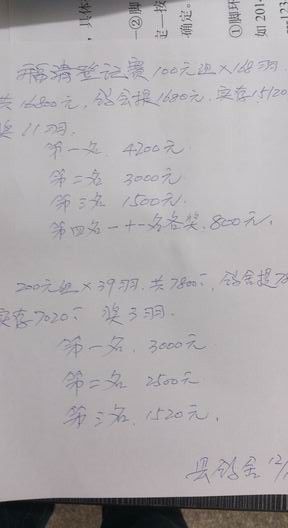 具体
一②脚
定一按
确定。
①脚环
如201
福清登记赛100元组×168羽.
共16800元,鸽会提1680元.实存15120
奖11羽.
第一名 4200元
第二名 3000元
第三名 1500元
第四名一十一名各奖.800元.
200元组×39羽.共7800元,鸽会提78
实存7020元 奖3羽.
第一名. 3000元
第二名 2500元
第三名.1520元.
县鸽会 12/